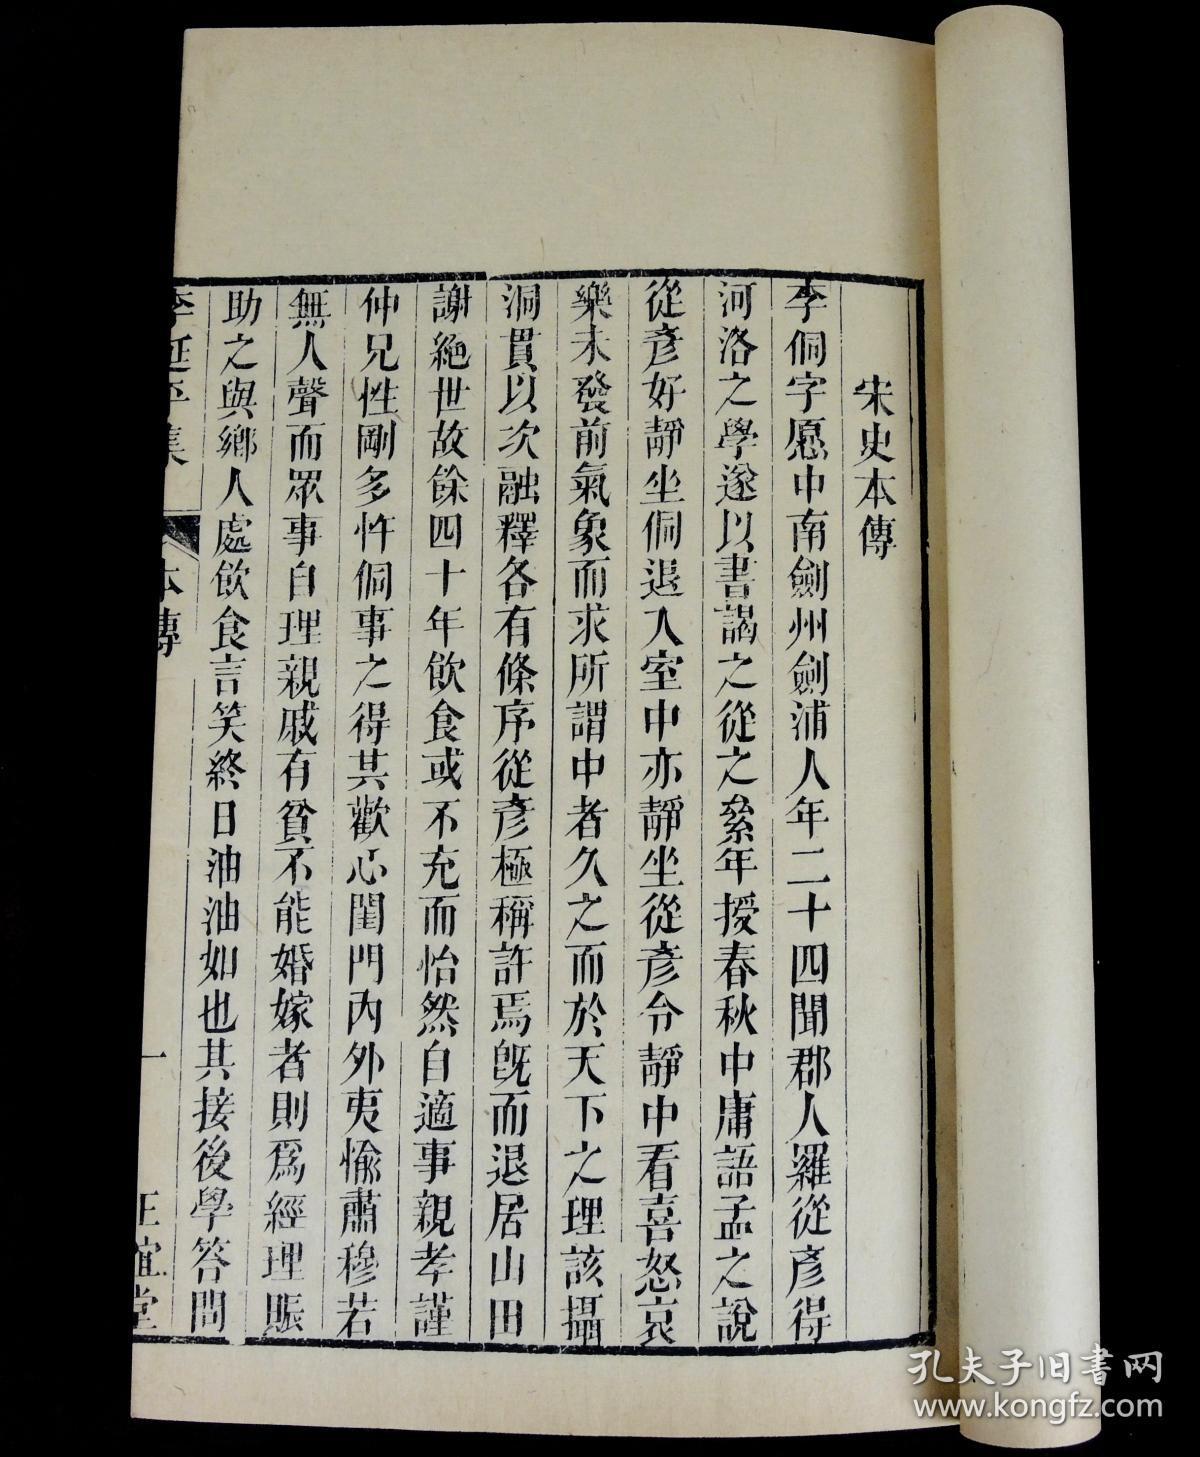 宋史本傳
李侗字愿中南劍州劍浦人年二十四聞郡人羅從彥得
河洛之學遂以書謁之從之絫年授春秋中庸語孟之說
從彥好靜坐侗退入室中亦靜坐從彥令靜中看喜怒哀
樂未發前氣象而求所謂中者久之而於天下之理該攝
洞貫以次融釋各有條序從彥極稱許焉旣而退居山田
謝絕世故餘四十年飲食或不充而怡然自適事親孝謹
仲兄性剛多忤侗事之得其歡心閨門內外夷愉肅穆若
無人聲而眾事自理親戚有貧不能婚嫁者則爲經理賑
助之與鄉人處飲食言笑終日油油如也其接後學答問
李延平集 本傳 一 正誼堂
孔夫子旧书网
www.kongfz.com